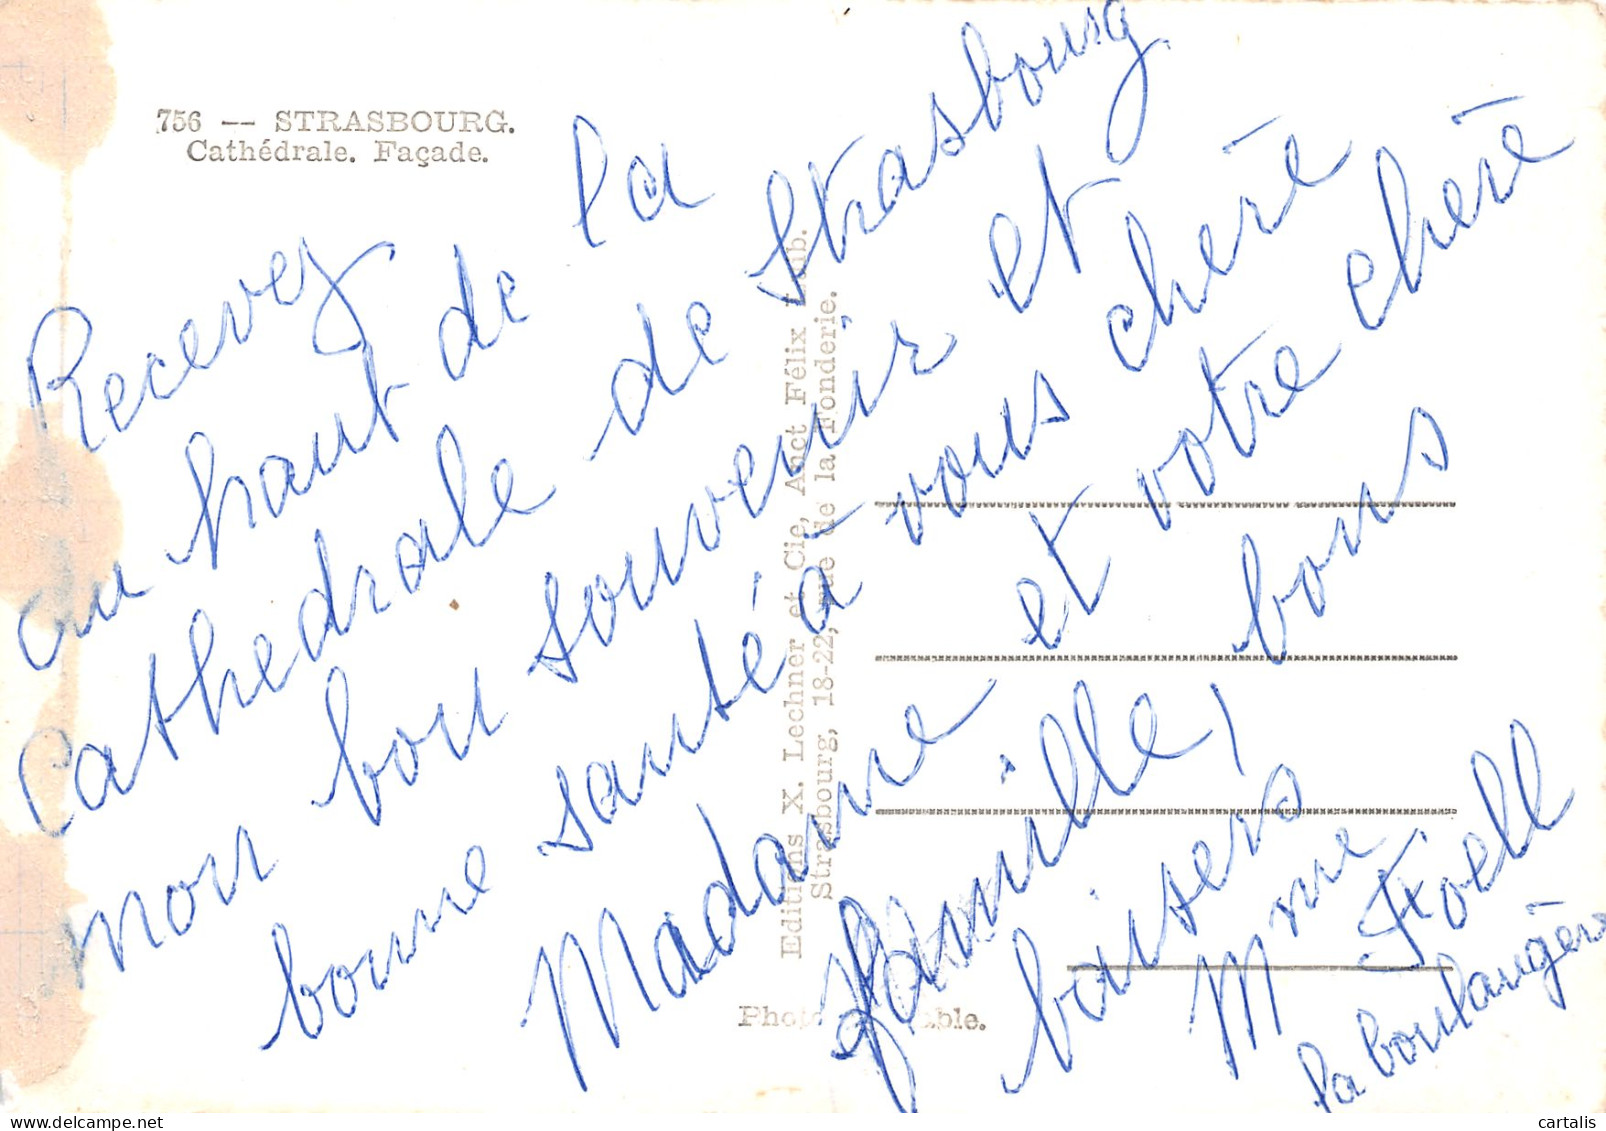 756 — STRASBOURG.
Cathédrale. Façade.
Recevez
au haut de la
Cathedrale de Strasbourg
mon bon souvenir et
bonne santé à vous cherè
Madame et votre cherè
famille, bons
baisers
Mme Foell
la boulangère
Editions X. Lechner et Cie, Anct Félix Luib.
Strasbourg, 18-22, rue de la Fonderie.
cartalis